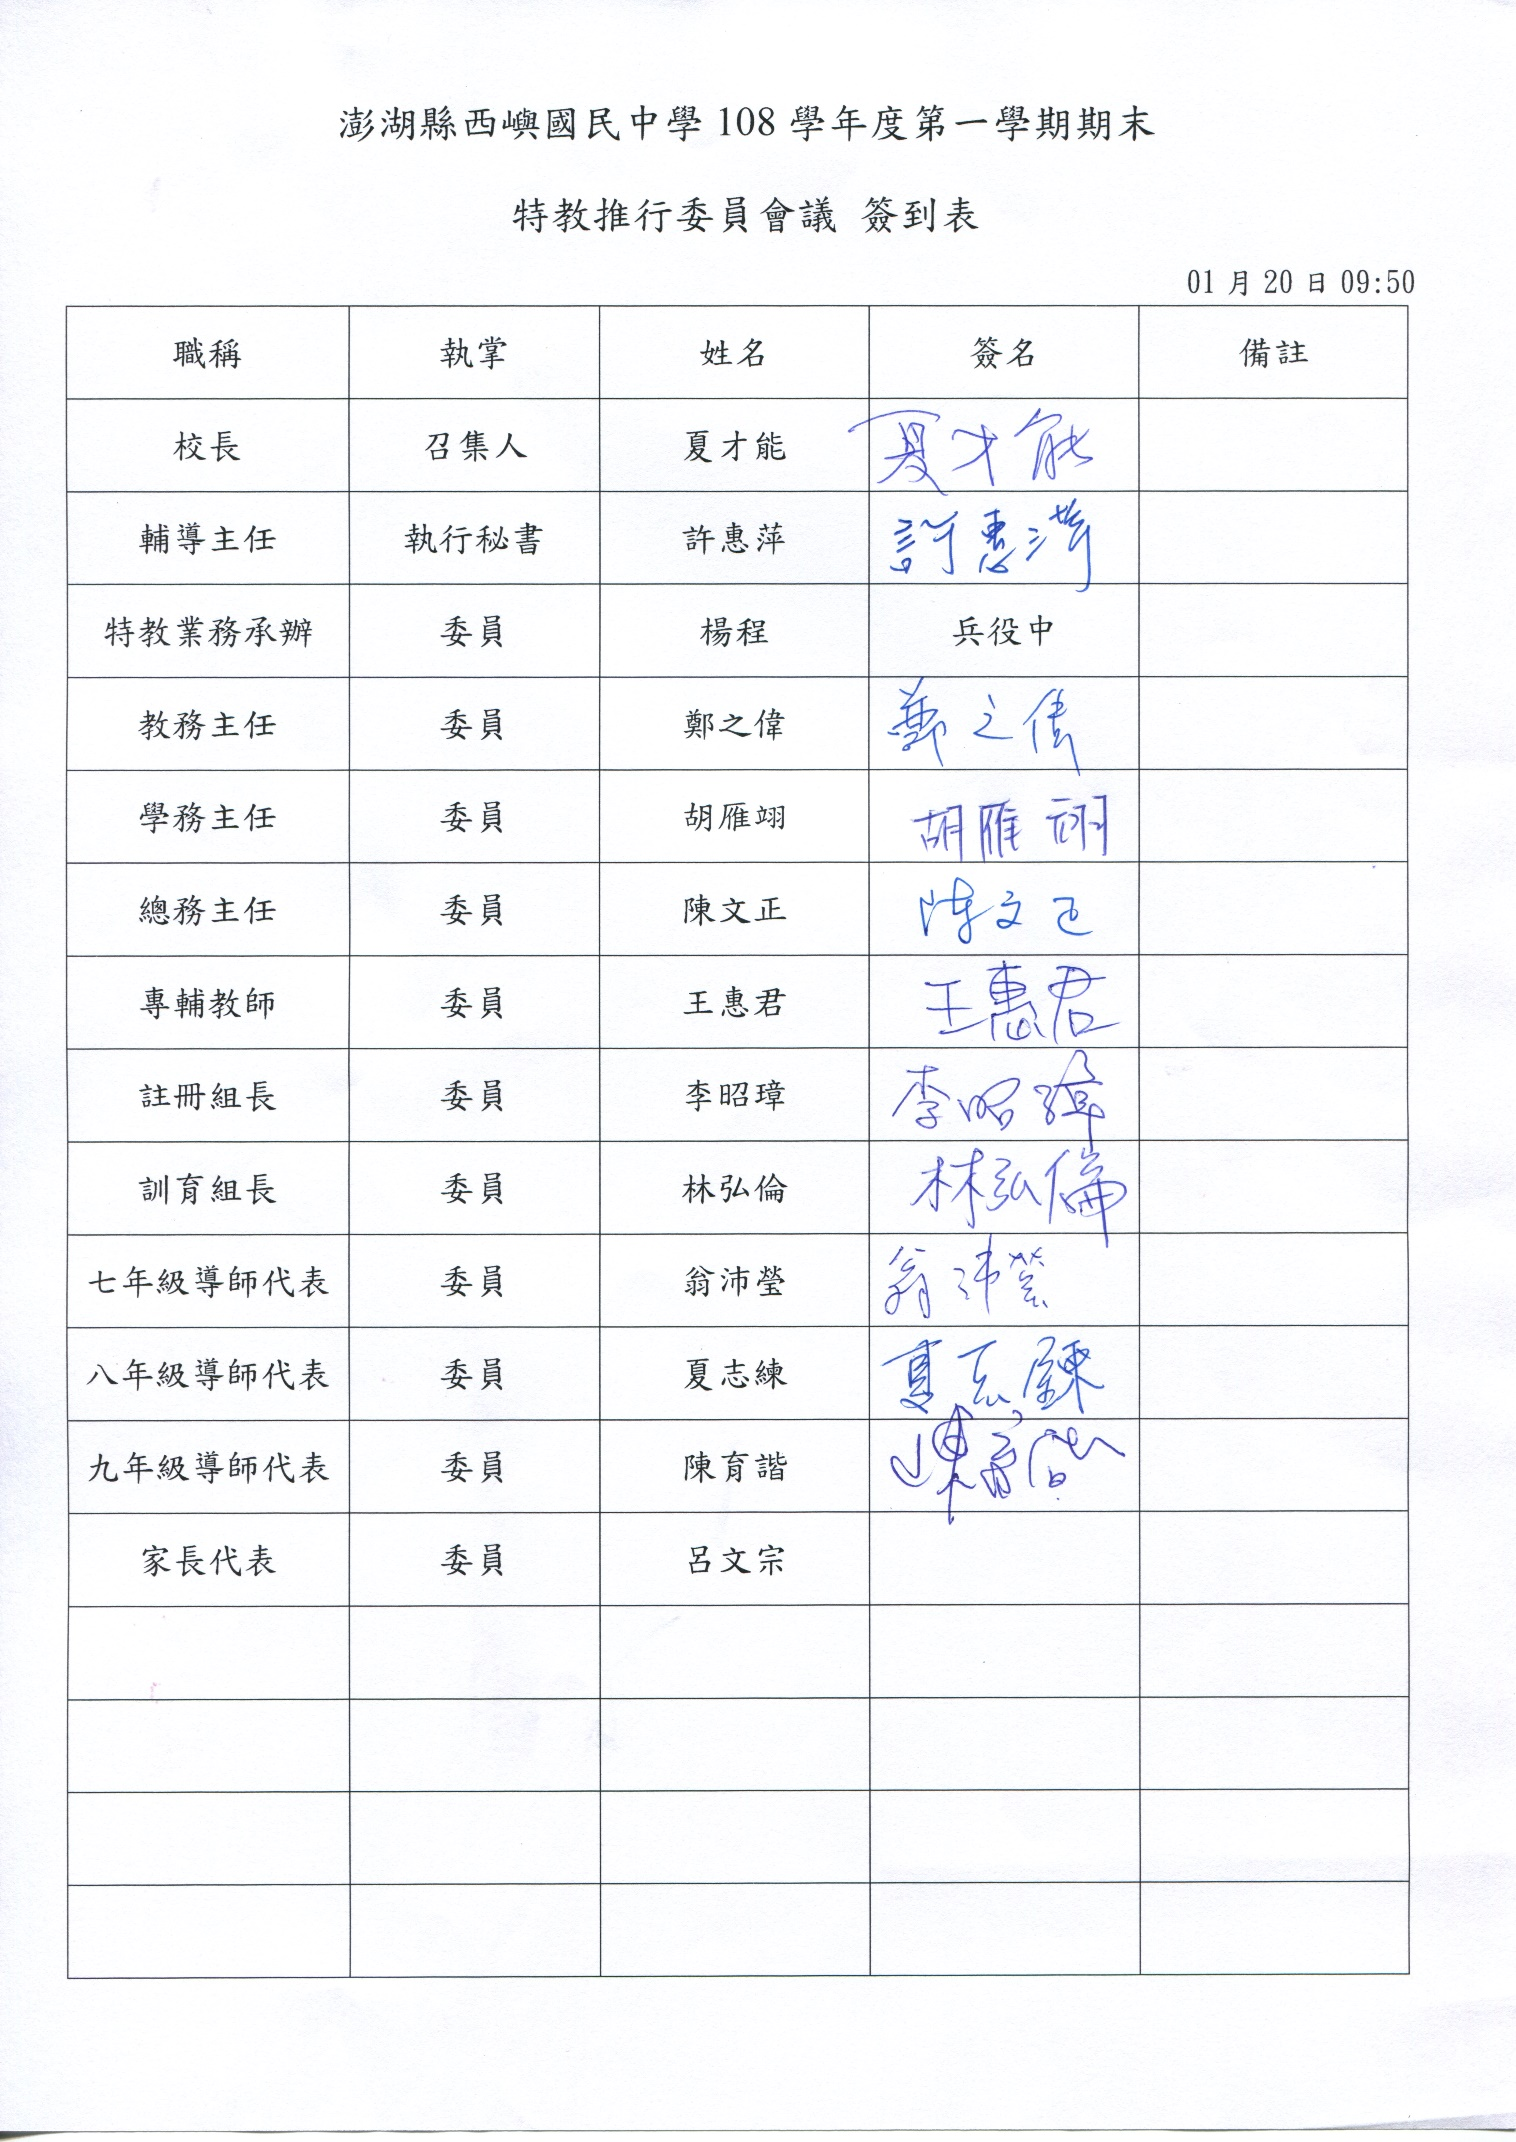 澎湖縣西嶼國民中學 108 學年度第一學期期末
特教推行委員會議 簽到表
01 月 20 日 09:50
職稱 執掌 姓名 簽名 備註
校長 召集人 夏才能 夏才能
輔導主任 執行秘書 許惠萍 許惠萍
特教業務承辦 委員 楊程 兵役中
教務主任 委員 鄭之偉 鄭之偉
學務主任 委員 胡雁翊 胡雁翊
總務主任 委員 陳文正 陳文正
專輔教師 委員 王惠君 王惠君
註冊組長 委員 李昭璋 李昭璋
訓育組長 委員 林弘倫 林弘倫
七年級導師代表 委員 翁沛瑩 翁沛瑩
八年級導師代表 委員 夏志練 夏志練
九年級導師代表 委員 陳育諧 陳育諧
家長代表 委員 呂文宗